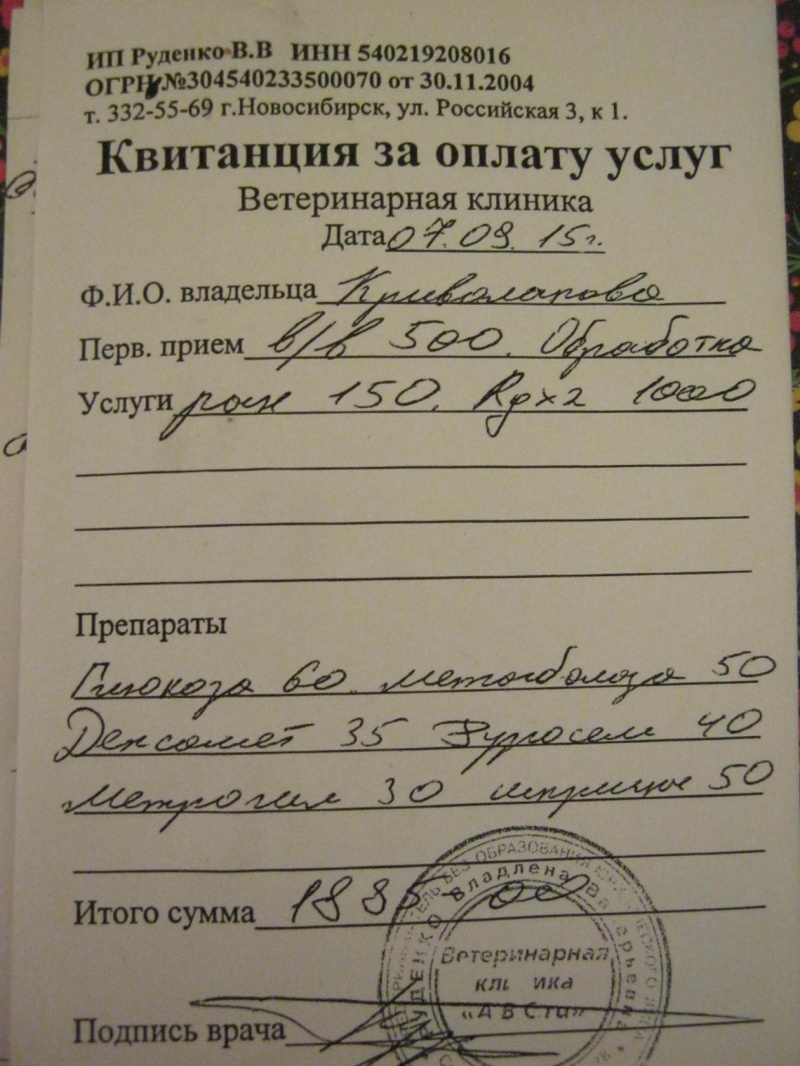 ИП Руденко В.В ИНН 540219208016
ОГРН №304540233500070 от 30.11.2004
т. 332-55-69 г.Новосибирск, ул. Российская 3, к 1.
Квитанция за оплату услуг
Ветеринарная клиника
Дата 07.09.15г.
Ф.И.О. владельца Криволапова
Перв. прием в/в 500. Обработка
Услуги ран 150. Rgx2 1000
Препараты
Глюкоза 60. 50
Дексамет 35 Фуросем 40
Метрогил 30 шприцы 50
Итого сумма 1885 00
Подпись врача
БЕЗ ОБРАЗОВАНИЯ
Владлена
Ветеринарная